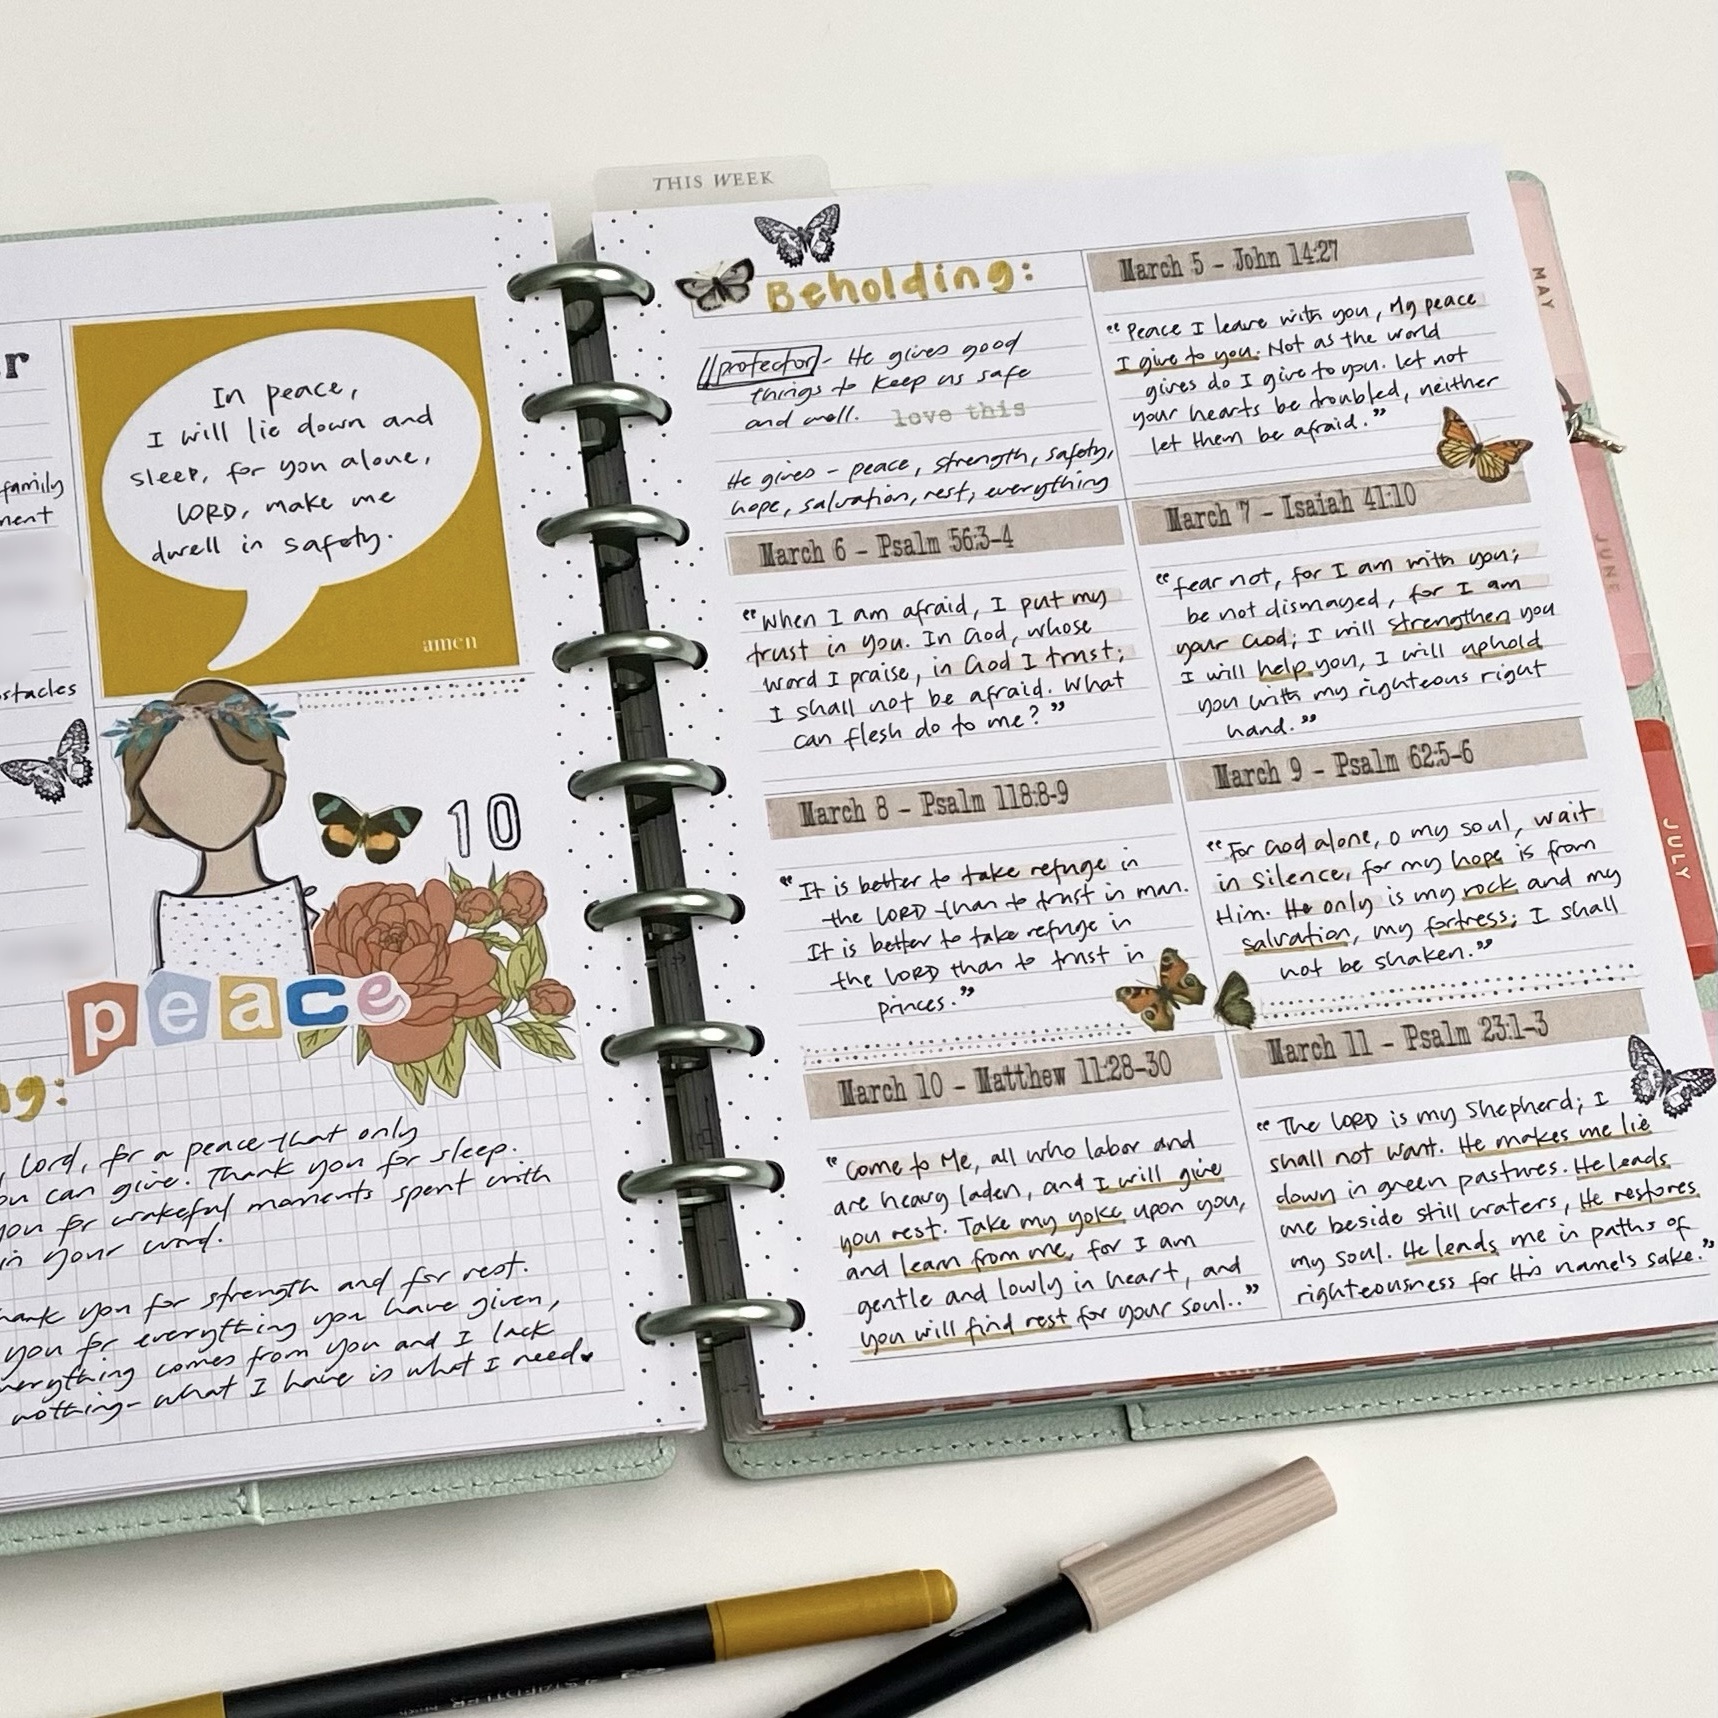 r
family
ment
stacles
In peace,
I will lie down and
sleep, for you alone,
LORD, make me
dwell in safety.
amen
10
peace
ng:
, Lord, for a peace that only
ou can give. Thank you for sleep.
you for wakeful moments spent with
in your word.
hank you for strength and for rest.
you for everything you have given,
verything comes from you and I lack
nothing- what I have is what I need
THIS WEEK
Beholding:
protector - He gives good
things to keep us safe
and well. love this
He gives - peace, strength, safety,
hope, salvation, rest, everything
March 5 - John 14:27
"Peace I leave with you, My peace
I give to you. Not as the world
gives do I give to you. Let not
your hearts be troubled, neither
let them be afraid."
March 6 - Psalm 56:3-4
"When I am afraid, I put my
trust in you. In God, whose
word I praise, in God I trust;
I shall not be afraid. What
can flesh do to me?"
March 7 - Isaiah 41:10
"fear not, for I am with you;
be not dismayed, for I am
your God; I will strengthen you
I will help you, I will uphold
you with my righteous right
hand."
March 8 - Psalm 118:8-9
"It is better to take refuge in
the LORD than to trust in man.
It is better to take refuge in
the LORD than to trust in
princes."
March 9 - Psalm 62:5-6
"For God alone, O my soul, wait
in silence, for my hope is from
Him. He only is my rock and my
salvation, my fortress; I shall
not be shaken."
March 10 - Matthew 11:28-30
"Come to Me, all who labor and
are heavy laden, and I will give
you rest. Take my yoke upon you,
and learn from me, for I am
gentle and lowly in heart, and
you will find rest for your soul.."
March 11 - Psalm 23:1-3
"The LORD is my Shepherd; I
shall not want. He makes me lie
down in green pastures. He leads
me beside still waters, He restores
my soul. He leads me in paths of
righteousness for His name's sake."
MAY
JUNE
JULY
STAEDTLER